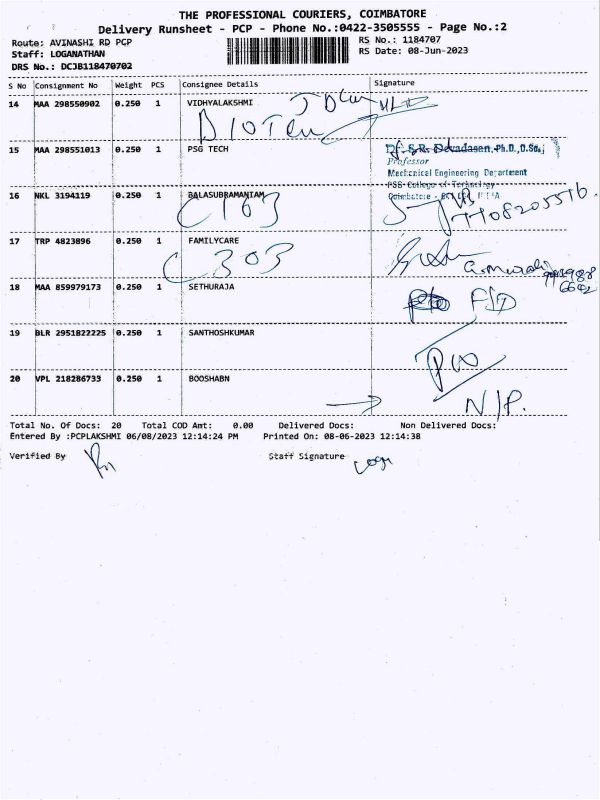 THE PROFESSIONAL COURIERS, COIMBATORE
Delivery Runsheet - PCP - Phone No.:0422-3505555 - Page No.:2
Route: AVINASHI RD PCP
Staff: LOGANATHAN
DRS No.: DCJB118470702
RS No.: 1184707
RS Date: 08-Jun-2023
S No Consignment No Weight PCS Consignee Details Signature
14 MAA 298550902 0.250 1 VIDHYALAKSHMI
15 MAA 298551013 0.250 1 PSG TECH
Dr. S.R. Devadasan, Ph.D., D.Sc.,
Professor
Mechanical Engineering Department
PSG College of Technology
Coimbatore
16 NKL 3194119 0.250 1 BALASUBRAMANIAM
C163
17 TRP 4823896 0.250 1 FAMILYCARE
C303
18 MAA 859979173 0.250 1 SETHURAJA
19 BLR 2951822225 0.250 1 SANTHOSHKUMAR
20 VPL 218286733 0.250 1 BOOSHABN
N/P.
Total No. Of Docs: 20 Total COD Amt: 0.00 Delivered Docs: Non Delivered Docs:
Entered By :PCPLAKSHMI 06/08/2023 12:14:24 PM Printed On: 08-06-2023 12:14:38
Verified By Staff Signature